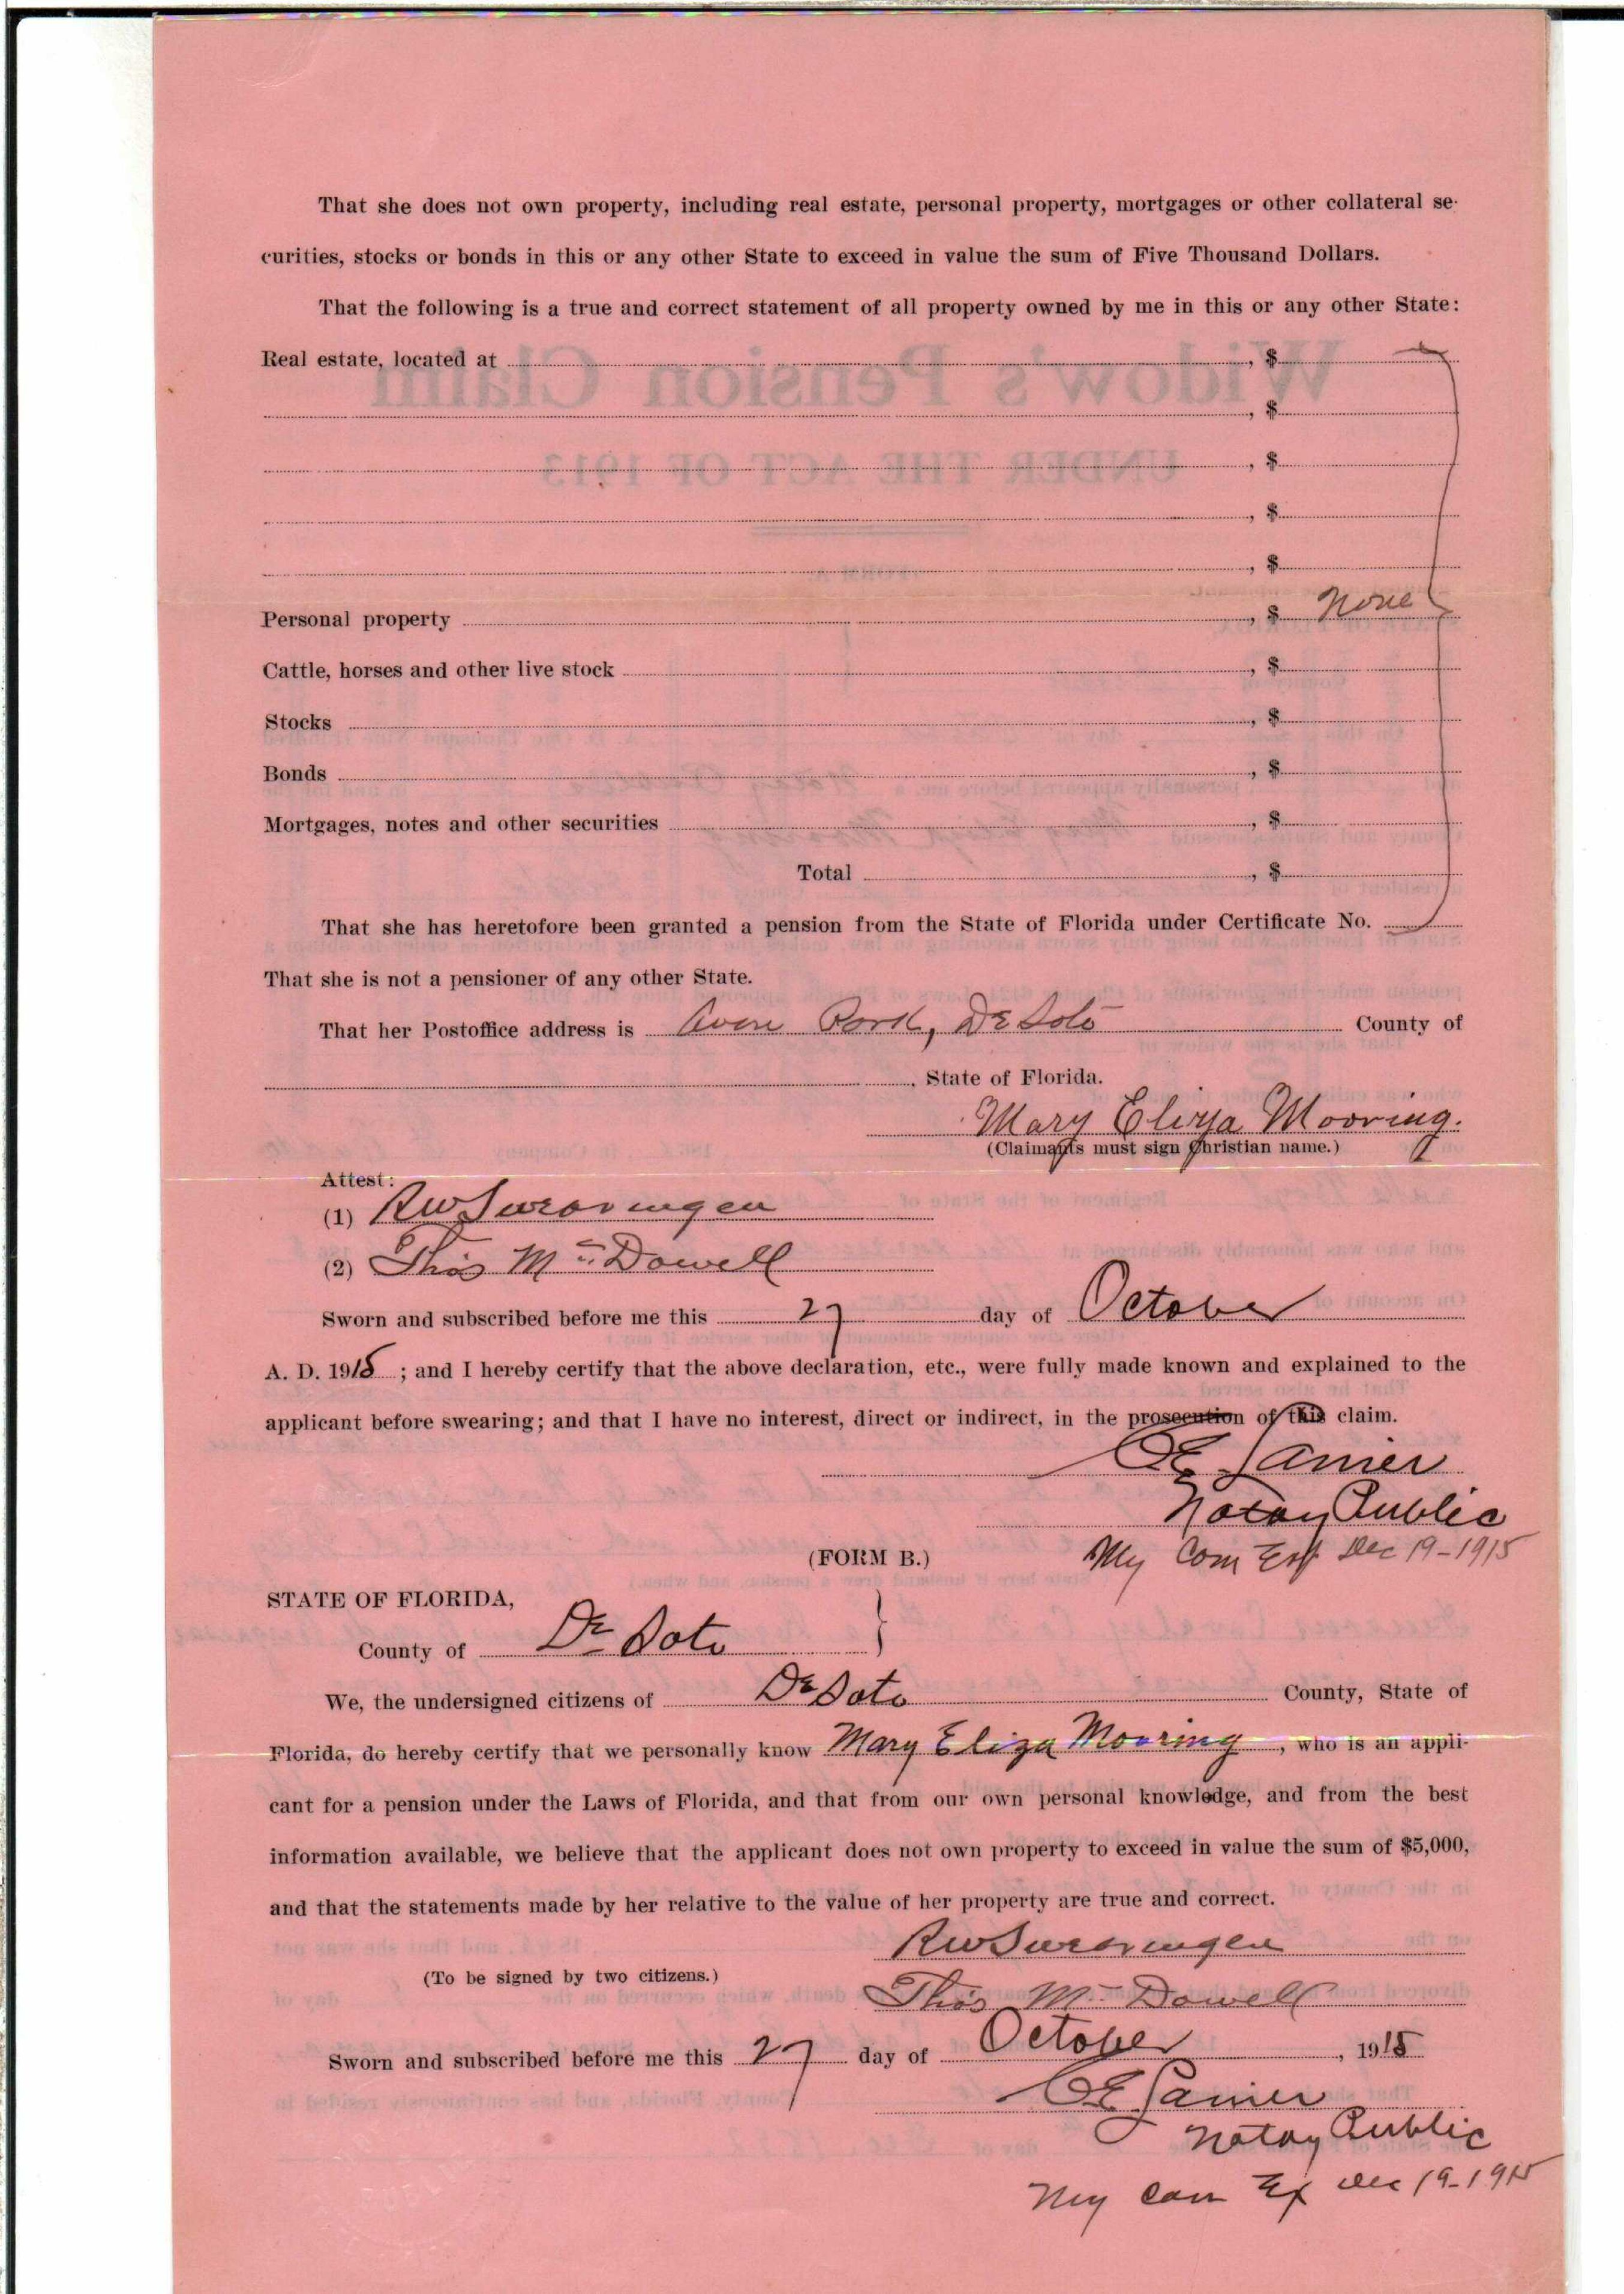 That she does not own property, including real estate, personal property, mortgages or other collateral se-
curities, stocks or bonds in this or any other State to exceed in value the sum of Five Thousand Dollars.
That the following is a true and correct statement of all property owned by me in this or any other State:
Real estate, located at , $
, $
, $
, $
, $
Personal property , $ None
Cattle, horses and other live stock , $
Stocks , $
Bonds , $
Mortgages, notes and other securities , $
Total , $
That she has heretofore been granted a pension from the State of Florida under Certificate No.
That she is not a pensioner of any other State.
That her Postoffice address is Avon Park, De Soto County of
, State of Florida.
Mary Eliza Mooring.
(Claimants must sign Christian name.)
Attest:
(1) RW Swearingen
(2) Thos McDowell
Sworn and subscribed before me this 27 day of October
A. D. 1915 ; and I hereby certify that the above declaration, etc., were fully made known and explained to the
applicant before swearing; and that I have no interest, direct or indirect, in the prosecution of this claim.
Lanier
Notary Public
My Com Exp Dec 19-1915
(FORM B.)
STATE OF FLORIDA,
County of De Soto }
We, the undersigned citizens of De Soto County, State of
Florida, do hereby certify that we personally know Mary Eliza Mooring , who is an appli-
cant for a pension under the Laws of Florida, and that from our own personal knowledge, and from the best
information available, we believe that the applicant does not own property to exceed in value the sum of $5,000,
and that the statements made by her relative to the value of her property are true and correct.
RW Swearingen
(To be signed by two citizens.)
Thos McDowell
Sworn and subscribed before me this 27 day of October , 1915
Lanier
Notary Public
My Com Ex Dec 19-1915